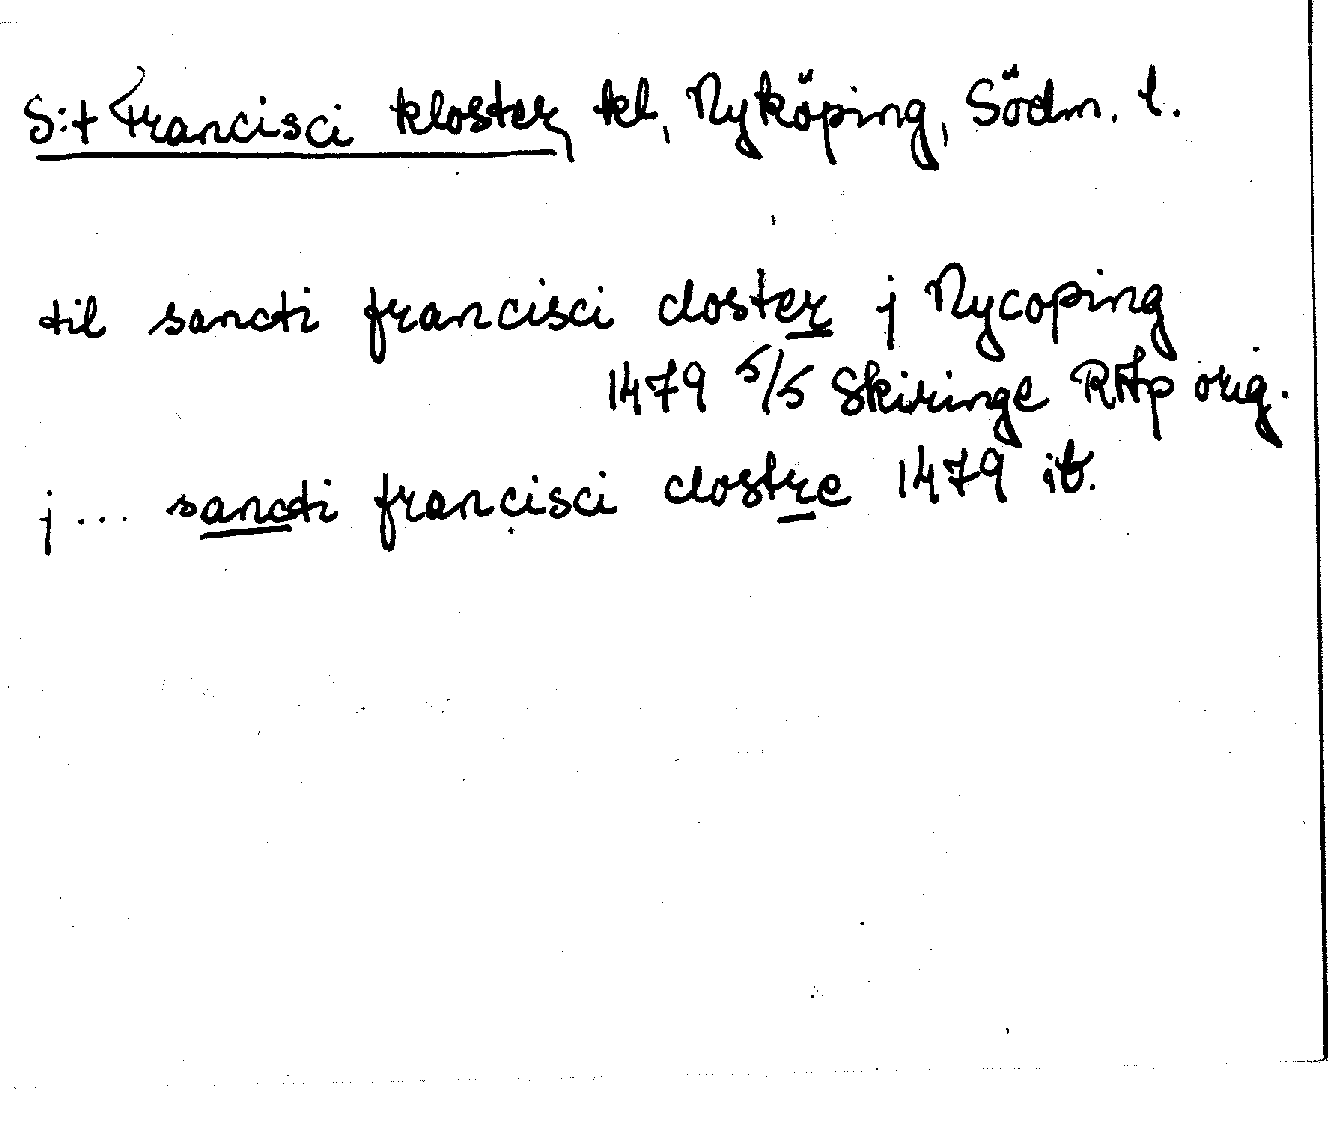 S:t Francisci kloster, kl, Nyköping, Södm. l.
til sancti francisci closter j Nycoping
1479 5/5 Skiringe RAp orig.
j ... sancti francisci clostre 1479 ib.